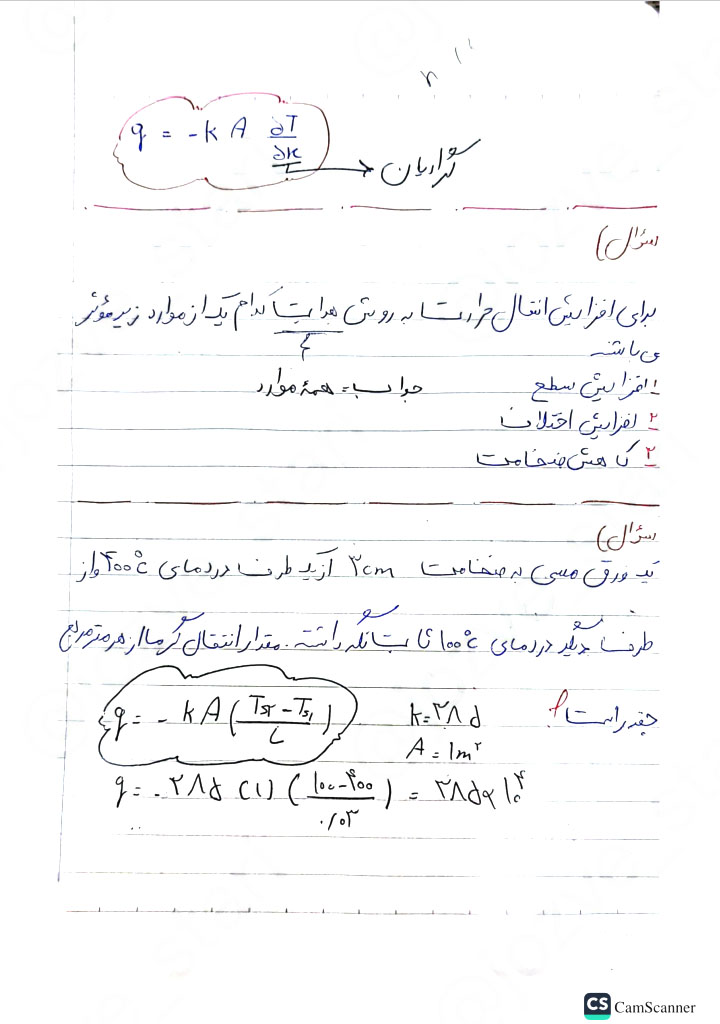 q = -k A ∂T/∂x
گرادیان
سؤال)
برای افزایش انتقال حرارت به روش هدایت کدام یک از موارد زیر مؤثر
می باشند
۱ افزایش سطح جواب = همهٔ موارد
۲ افزایش اختلاف
۳ کاهش ضخامت
سؤال)
یک ورق مسی به ضخامت ۳cm از یک طرف در دمای ۴۰۰°c و از
طرف دیگر در دمای ۱۰۰°c ثابت نگه داشته. مقدار انتقال گرما از هر متر مربع
چقدر است؟
q = - k A (Ts۲ - Ts۱ / L) k = ۳۸۵
A = ۱m²
q = - ۳۸۵ (۱) (۱۰۰ - ۴۰۰ / ۰/۰۳) = ۳۸۵ x ۱۰⁴
CS CamScanner